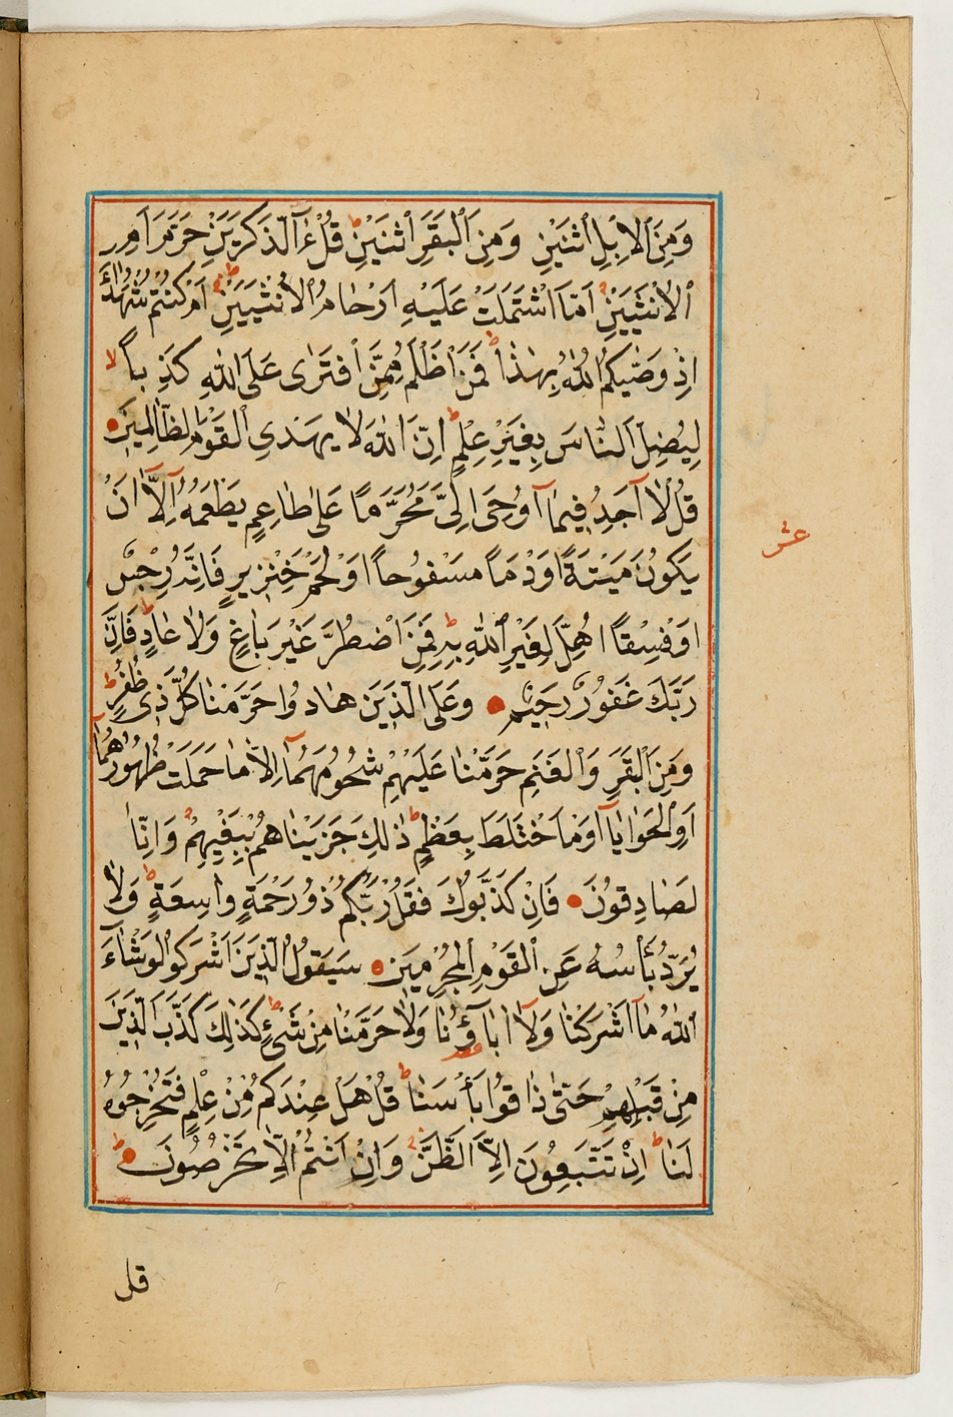 وَمِنَ الْاِبِلِ اثْنَيْنِ وَمِنَ الْبَقَرِ اثْنَيْنِ ط قُلْ ءٰٓالذَّكَرَيْنِ حَرَّمَ اَمِ
الْاُنْثَيَيْنِ اَمَّا اشْتَمَلَتْ عَلَيْهِ اَرْحَامُ الْاُنْثَيَيْنِ ط اَمْ كُنْتُمْ شُهَدَٓاءَ
اِذْ وَصّٰيكُمُ اللّٰهُ بِهٰذَا ط فَمَنْ اَظْلَمُ مِمَّنِ افْتَرٰى عَلَى اللّٰهِ كَذِبًا لا
لِيُضِلَّ النَّاسَ بِغَيْرِ عِلْمٍ ط اِنَّ اللّٰهَ لَا يَهْدِى الْقَوْمَ الظَّالِمِينَ
قُلْ لَٓا اَجِدُ فِيمَٓا اُوحِىَ اِلَىَّ مُحَرَّمًا عَلٰى طَاعِمٍ يَطْعَمُهُٓ اِلَّٓا اَنْ
يَكُونَ مَيْتَةً اَوْ دَمًا مَسْفُوحًا اَوْ لَحْمَ خِنْزِيرٍ فَاِنَّهُ رِجْسٌ
اَوْ فِسْقًا اُهِلَّ لِغَيْرِ اللّٰهِ بِهِ ط فَمَنِ اضْطُرَّ غَيْرَ بَاغٍ وَلَا عَادٍ ط فَاِنَّ
رَبَّكَ غَفُورٌ رَحِيمٌ وَعَلَى الَّذِينَ هَادُوا حَرَّمْنَا كُلَّ ذِى ظُفُرٍ ط
وَمِنَ الْبَقَرِ وَالْغَنَمِ حَرَّمْنَا عَلَيْهِمْ شُحُومَهُمَٓا اِلَّا مَا حَمَلَتْ ظُهُورُهُمَٓا
اَوِ الْحَوَايَٓا اَوْ مَا اخْتَلَطَ بِعَظْمٍ ط ذٰلِكَ جَزَيْنَاهُمْ بِبَغْيِهِمْ وَاِنَّا
لَصَادِقُونَ فَاِنْ كَذَّبُوكَ فَقُلْ رَبُّكُمْ ذُو رَحْمَةٍ وَاسِعَةٍ ط وَلَا
يُرَدُّ بَأْسُهُ عَنِ الْقَوْمِ الْمُجْرِمِينَ سَيَقُولُ الَّذِينَ اَشْرَكُوا لَوْ شَٓاءَ
اللّٰهُ مَٓا اَشْرَكْنَا وَلَٓا اٰبَٓاؤُنَا وَلَا حَرَّمْنَا مِنْ شَىْءٍ ط كَذٰلِكَ كَذَّبَ الَّذِينَ
مِنْ قَبْلِهِمْ حَتّٰى ذَاقُوا بَأْسَنَا ط قُلْ هَلْ عِنْدَكُمْ مِنْ عِلْمٍ فَتُخْرِجُوهُ
لَنَا ط اِنْ تَتَّبِعُونَ اِلَّا الظَّنَّ وَاِنْ اَنْتُمْ اِلَّا تَخْرُصُونَ ط
عشر
قل